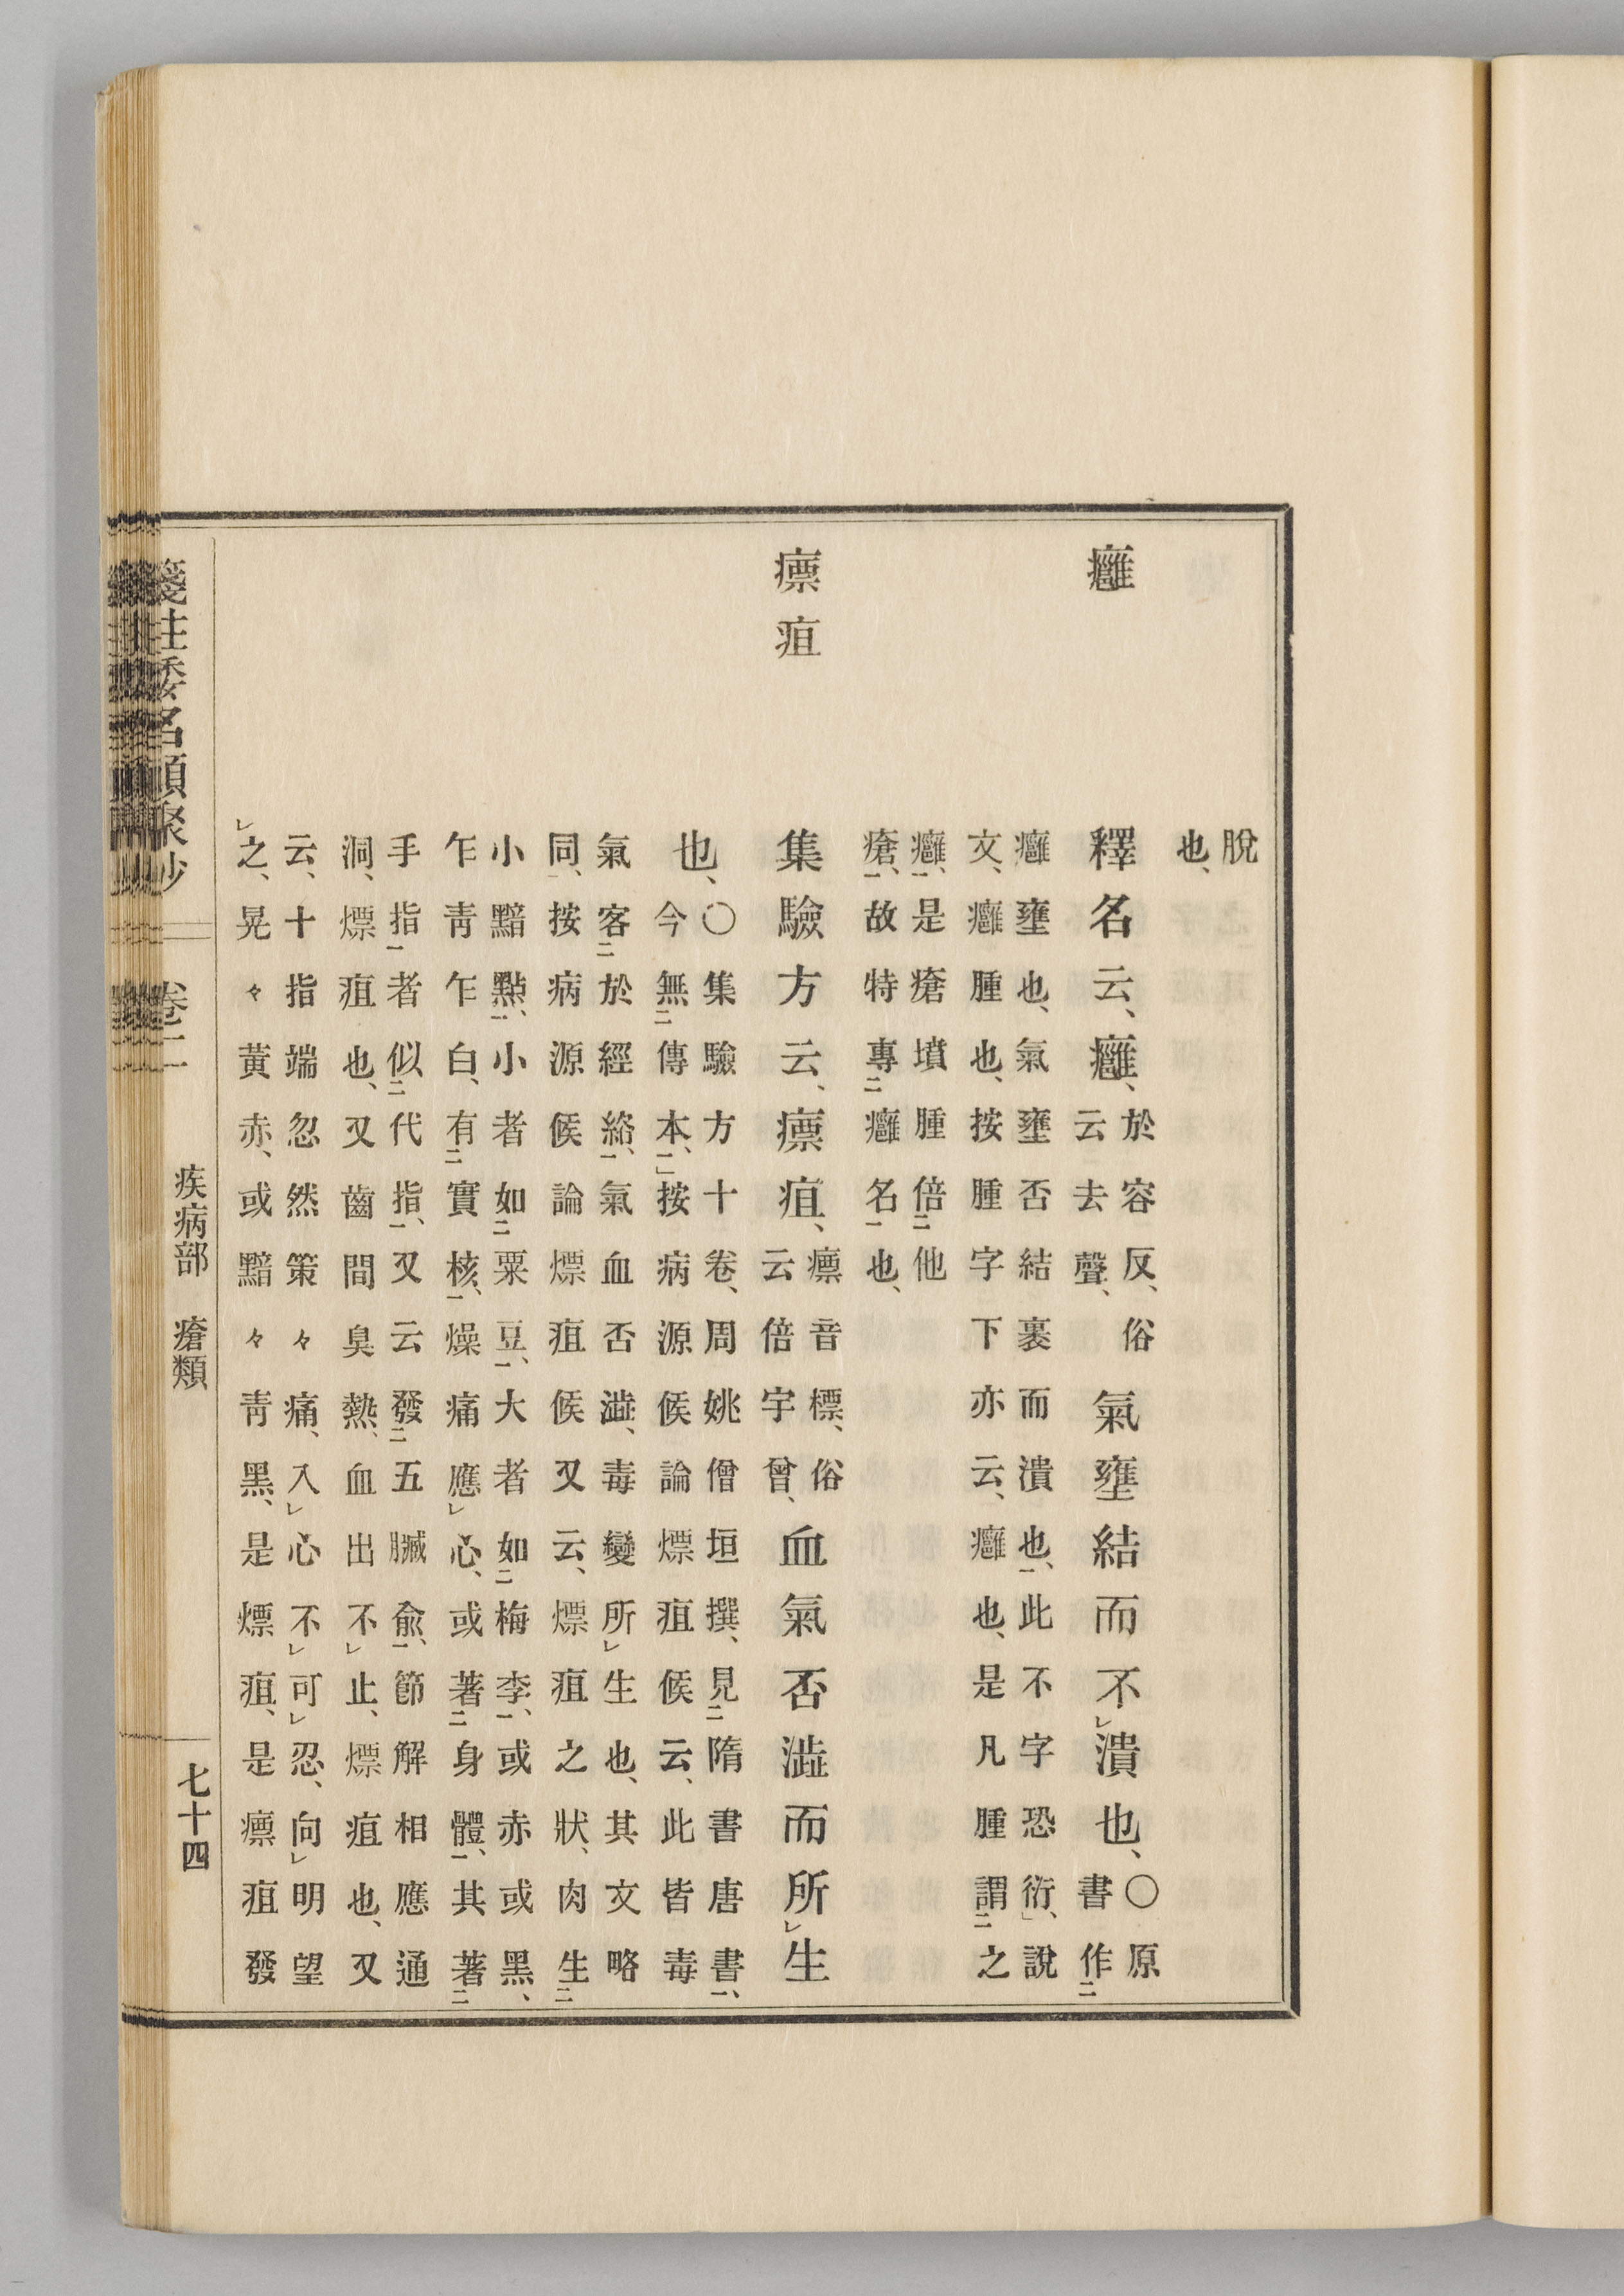 脫
也、
癰 釋名云、癰、於容反、俗
云去聲、 氣壅結而不㆑潰也、○原
書作㆓
癰壅也、氣壅否結裹而潰也㆒、此不字恐衍、」說
文、癰腫也、按腫字下亦云、癰也、是凡腫謂㆓之
癰㆒、是瘡墳腫倍㆓他
瘡㆒、故特專㆓癰名㆒也、
瘭疽 集驗方云、瘭疽、瘭音標、俗
云倍宇曾、 血氣否澁而所㆑生
也、○集驗方十卷、周姚僧垣撰、見㆓隋書唐書㆒、
今無㆓傳本㆒、」按病源候論熛疽候云、此皆毒
氣客㆓於經絡㆒、氣血否澁、毒變所㆑生也、其文略
同、按病源候論熛疽候又云、熛疽之狀、肉生㆓
小黯點㆒、小者如㆓粟豆㆒、大者如㆓梅李㆒、或赤或黑、
乍靑乍白、有㆓實核㆒、燥痛應㆑心、或著㆓身體㆒、其著㆓
手指㆒者似㆓代指㆒、又云發㆓五臟俞㆒、節解相應通
洞、熛疽也、又齒間臭熱、血出不㆑止、熛疽也、又
云、十指端忽然策々痛、入㆑心不㆑可㆑忍、向㆑明望
㆑之、晃々黃赤、或黯々靑黑、是熛疽、是瘭疽發
箋注倭名類聚抄 卷二 疾病部 瘡類 七十四